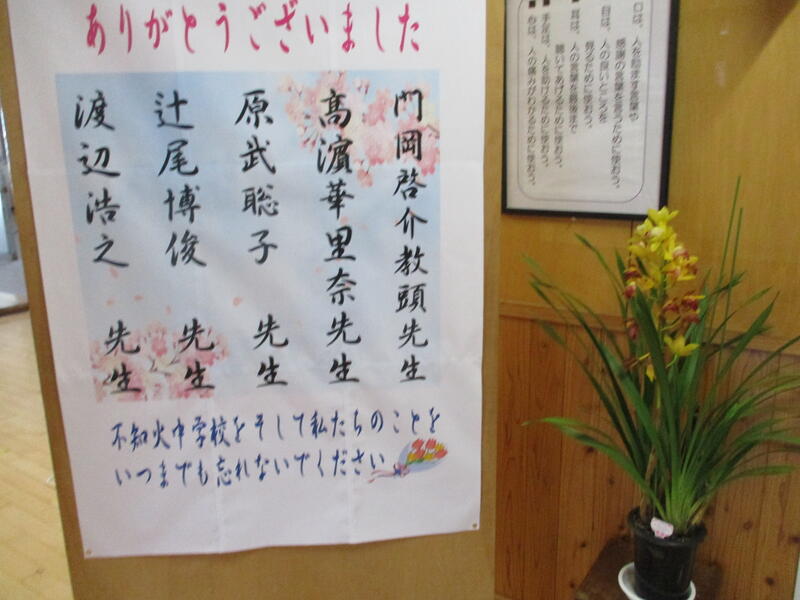 ありがとうございました
門岡啓介教頭先生
高濵華里奈先生
原武聡子 先生
辻尾博俊 先生
渡辺浩之 先生
不知火中学校をそして私たちのことを
いつまでも忘れないでください
口は、人を励ます言葉や
感謝の言葉を言うために使おう。
目は、人の良いところを
見るために使おう。
■ 耳は、人の言葉を最後まで
聴いてあげるために使おう。
■ 手足は、人を助けるために使おう。
■ 心は、人の痛みがわかるために使おう。